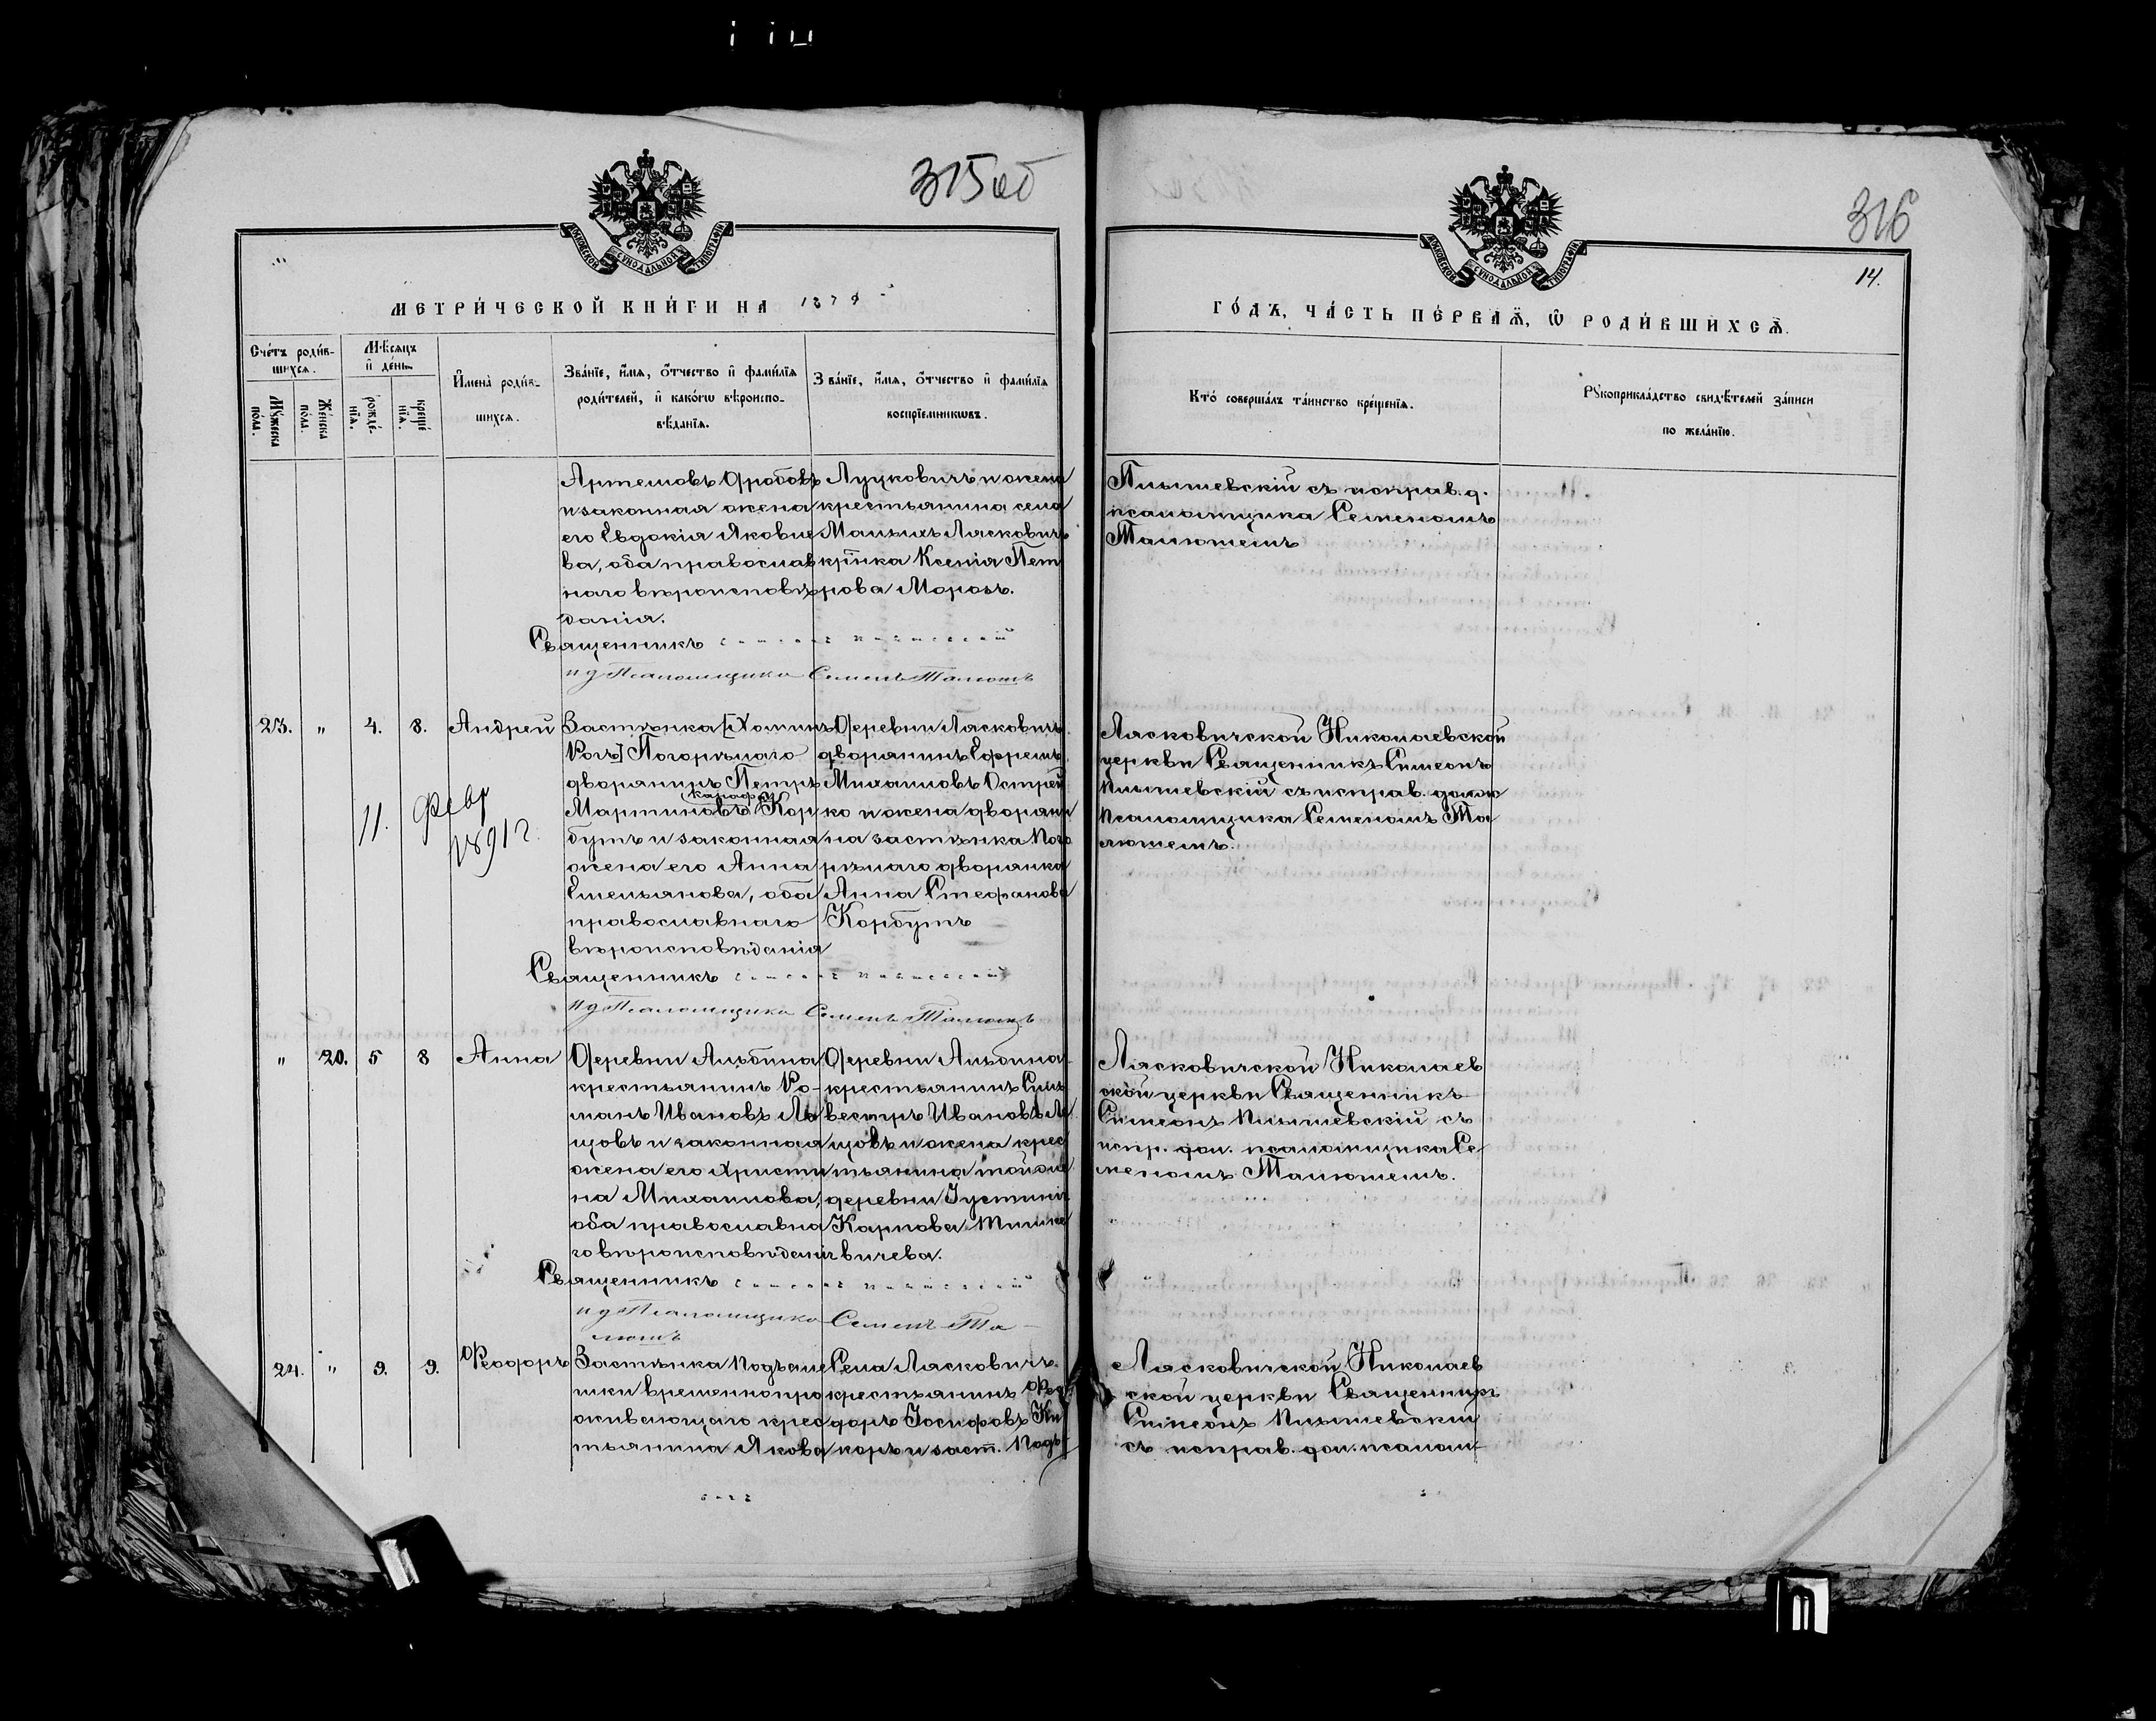 315 об
316
14.
МОСКОВСКОЙ СѴНОДАЛЬНОЙ ТИПОГРАФІИ
МОСКОВСКОЙ СѴНОДАЛЬНОЙ ТИПОГРАФІИ
МЕТРИ́ЧЕСКОЙ КНИ́ГИ НА 1874
ГО́ДЪ, ЧА́СТЬ ПЕ́РВАѦ, Ѡ РОДИ́ВШИХСѦ.
Сче́тъ роди́в-
шихся.
Му́жеска по́ла.
Же́нска по́ла.
Мѣ́сяцъ
и де́нь.
рожде́-
нія.
креще́-
нія.
Имена̀ роди́в-
шихся.
Зва́ніе, и́мя, о́тчество и фами́лія
роди́телей, и како́гѡ вѣроиспо-
вѣ́данія.
Зва́ніе, и́мя, о́тчество и фами́лія
воспріе́мникѡвъ.
Кто̀ соверша́лъ та́инство креще́нія.
Рꙋкоприкла́дство свидѣ́телей за́писи
по жела́нію.
Артемовъ Дробовъ
и законная жена
его Евдокія Яковле
ва, оба православ
наго вѣроисповѣ
данія.
Луцковичъ и жена
крестьянина села
Малыхъ Лясковичъ
крт̃нка Ксенія Пет
рова Морозъ.
Пышевскій съ исправ. д.
псаломщика Семеномъ
Талюшемъ
Священникъ
и д Псаломщика Семенъ Талюшъ
23. " 4. 8. Андрей
11. Февр
1891 г.
Застѣнка [Хоминъ
Рогъ] Погорѣлаго
дворянинъ Петръ
Мартиновъ Кор
бутъ и законная
жена его Анна
Емельянова, оба
православнаго
вѣроисповѣданія
Деревни Лясковичъ
дворянинъ Ефремъ
Михаиловъ Острей
ко и жена дворяни
на застѣнка Пого
рѣлаго дворянка
Анна Стефанова
Корбутъ
Лясковичской Николаевской
церкви Священникъ Симеонъ
Пышевскій съ исправ. долж
псаломщика Семеномъ Та
люшемъ.
Священникъ
и д Псаломщика Семенъ Талюшъ
" 20. 5 8 Анна
Деревни Альбина
крестьянинъ Ро-
манъ Ивановъ Ль
цовъ и законная
жена его Христи
на Михаилова,
оба православна
го вѣроисповѣданія
Деревни Альбина
крестьянинъ Силь
вестръ Ивановъ Ль
цовъ и жена крес
тьянина той же
деревни Іустинія
Карпова Тимке
вичева.
Лясковичской Николаев
ской церкви Священникъ
Симеонъ Пышевскій съ
испр. дол. псаломщика Се
меномъ Талюшемъ.
Священникъ
и д Псаломщика Семенъ Та-
люшъ
24. " 9. 9. Феодоръ
Застѣнка Подъаме
шки временно про
живающаго крес
тьянина Якова
Села Лясковичъ
крестьянинъ Фео
доръ Іосифовъ Ки
коръ и заст. Подъ
Лясковичской Николаев
ской церкви Священникъ
Симеонъ Пышевскій
съ исправ. дол. псалом-